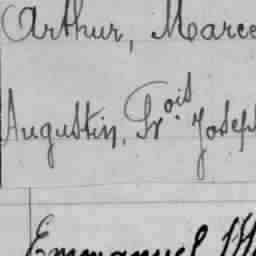 Arthur, Marce
Augustin, Fr.ois Joseph
Emmanuel